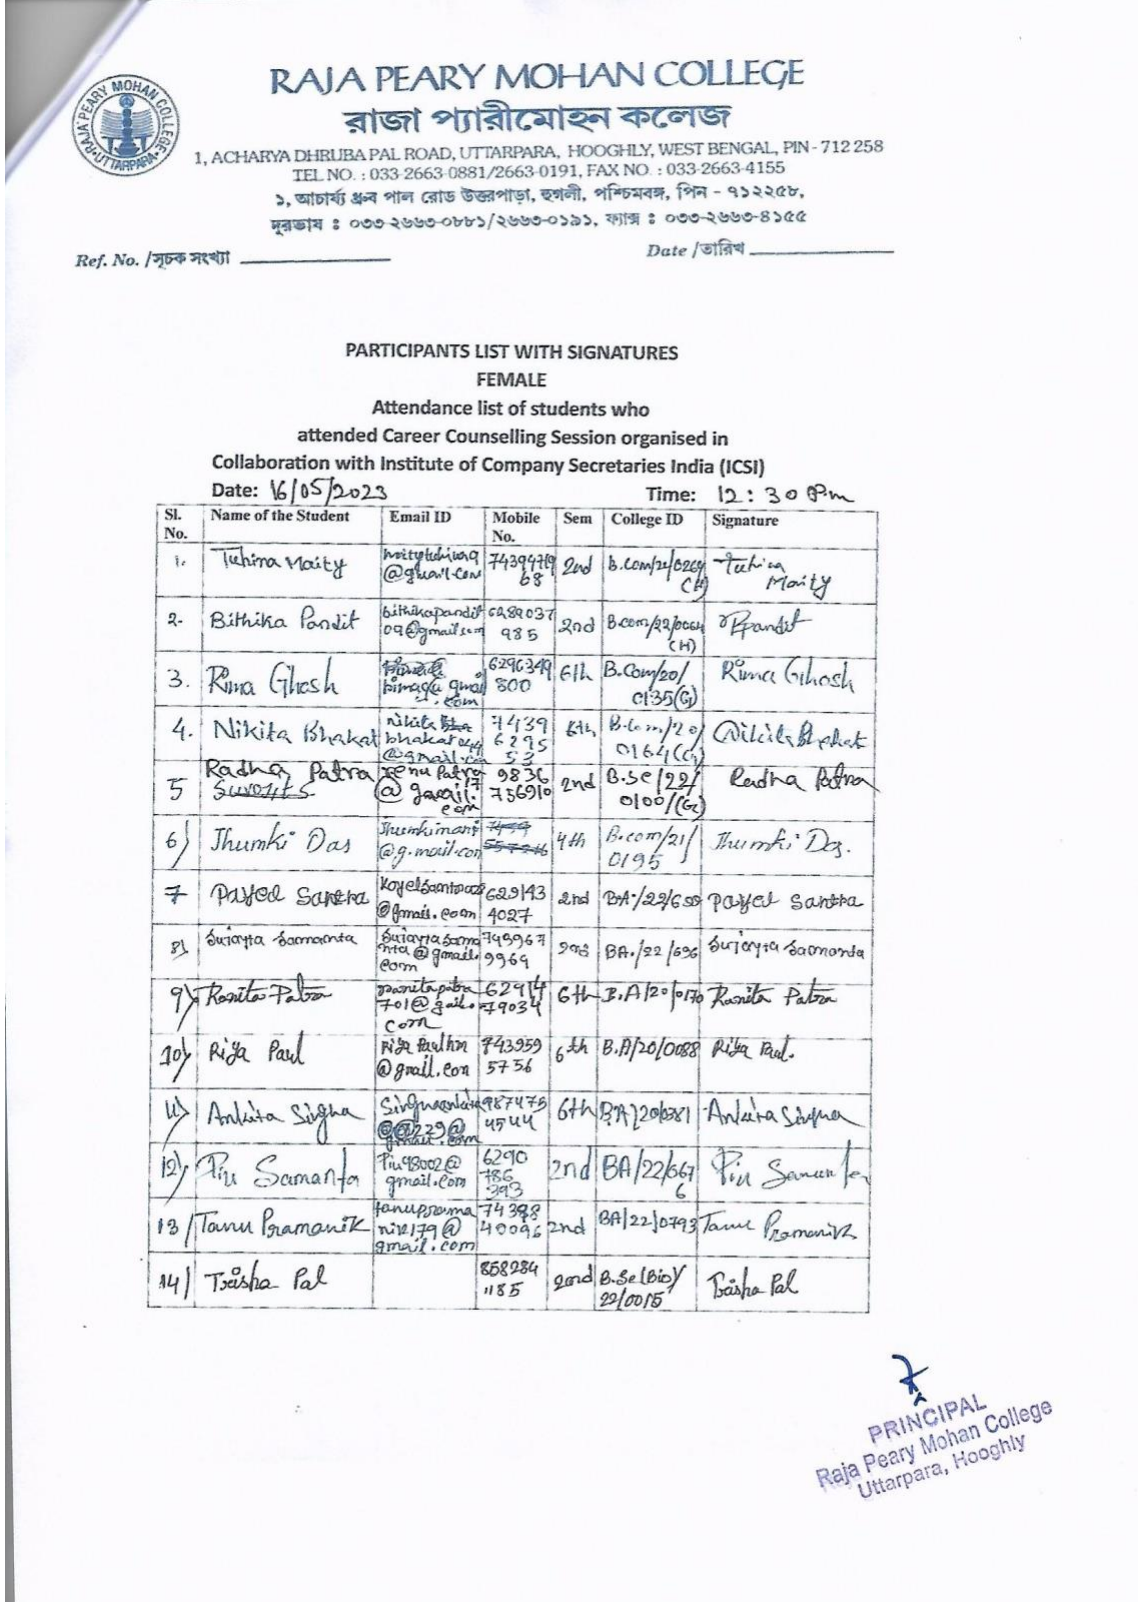 RAJA PEARY MOHAN COLLEGE
রাজা প্যারীমোহন কলেজ
1, ACHARYA DHRUBA PAL ROAD, UTTARPARA, HOOGHLY, WEST BENGAL, PIN - 712 258
TEL NO. : 033-2663-0881/2663-0191, FAX NO. : 033-2663-4155
১, আচার্য্য ধ্রুব পাল রোড উত্তরপাড়া, হুগলী, পশ্চিমবঙ্গ, পিন - ৭১২২৫৮,
দূরভাষ : ০৩৩-২৬৬৩-০৮৮১/২৬৬৩-০১৯১, ফ্যাক্স : ০৩৩-২৬৬৩-৪১৫৫
RAJA PEARY MOHAN COLLEGE
UTTARPARA
Ref. No. /সূচক সংখ্যা
Date /তারিখ
PARTICIPANTS LIST WITH SIGNATURES
FEMALE
Attendance list of students who
attended Career Counselling Session organised in
Collaboration with Institute of Company Secretaries India (ICSI)
Date: 16/05/2023 Time: 12:30 Pm
Sl. No. Name of the Student Email ID Mobile No. Sem College ID Signature
1. Tuhina Maity @gmail.com 2nd Tuhina Maity
2. Bithika Pandit bithikapandit09@gmail.com 6289037985 2nd B.com/22/0064 (H) Ppandit
3. Rima Ghosh 6296349800 6th B.Com/20/0135(G) Rima Ghosh
4. Nikita Bhakat Nikita bhakat044@gmail.com 7439629553 6th B.Com/20/0164(G) Nikita Bhakat
5 Radha Patra renu Patra17@gmail.com 9836756910 2nd B.Sc/22/0100/(G) Radha Patra
6) Jhumki Das Jhumkimani@g.mail.com 4th B.com/21/0195 Jhumki Das.
7 Payel Santra @gmail.com 6291434027 2nd BA/22/ Payel Santra
8) Sujayta Samanta Sujaytasamanta@gmail.com 7439679969 2nd BA./22/696 Sujayta Samanta
9) Ranita Patra ranitapatra701@gail.com 6291479034 6th B.A/20/0170 Ranita Patra
10) Riya Paul @gmail.com 7439595756 6th B.A/20/0088 Riya Paul.
11) Ankita Singha 9874754544 6th BA/20/0381 Ankita Singha
12) Piu Samanta Piu98002@gmail.com 6290786393 2nd BA/22/0676 Piu Samanta
13/ Tanu Pramanik tanupramanik179@gmail.com 2nd BA/22/0793 Tanu Pramanik
14/ Trisha Pal 8582841185 2nd B.Sc(Bio)/22/0015 Trisha Pal
PRINCIPAL
Raja Peary Mohan College
Uttarpara, Hooghly